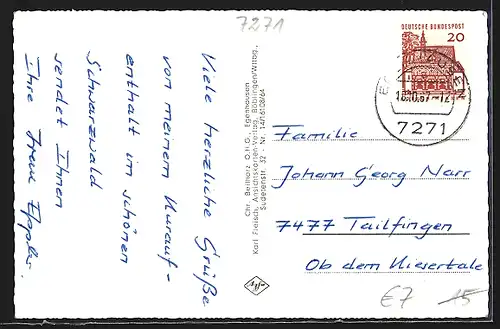 7271
Viele herzliche Grüße
von meinem Kurauf-
enthalt im schönen
Schwarzwald
sendet Ihnen
Ihre Frau Eppler.
Chr. Beilharz O.H.G. Egenhausen
Karl Fleisch, Ansichtskarten-Verlag, Böblingen/Wttbg.,
Sudetenstr. 32 Nr. 14/16128/64
DEUTSCHE BUNDESPOST
20
18.10.67-12
7271
Familie
Johann Georg Narr
7477 Tailfingen
Ob dem Niesertale
€7 15